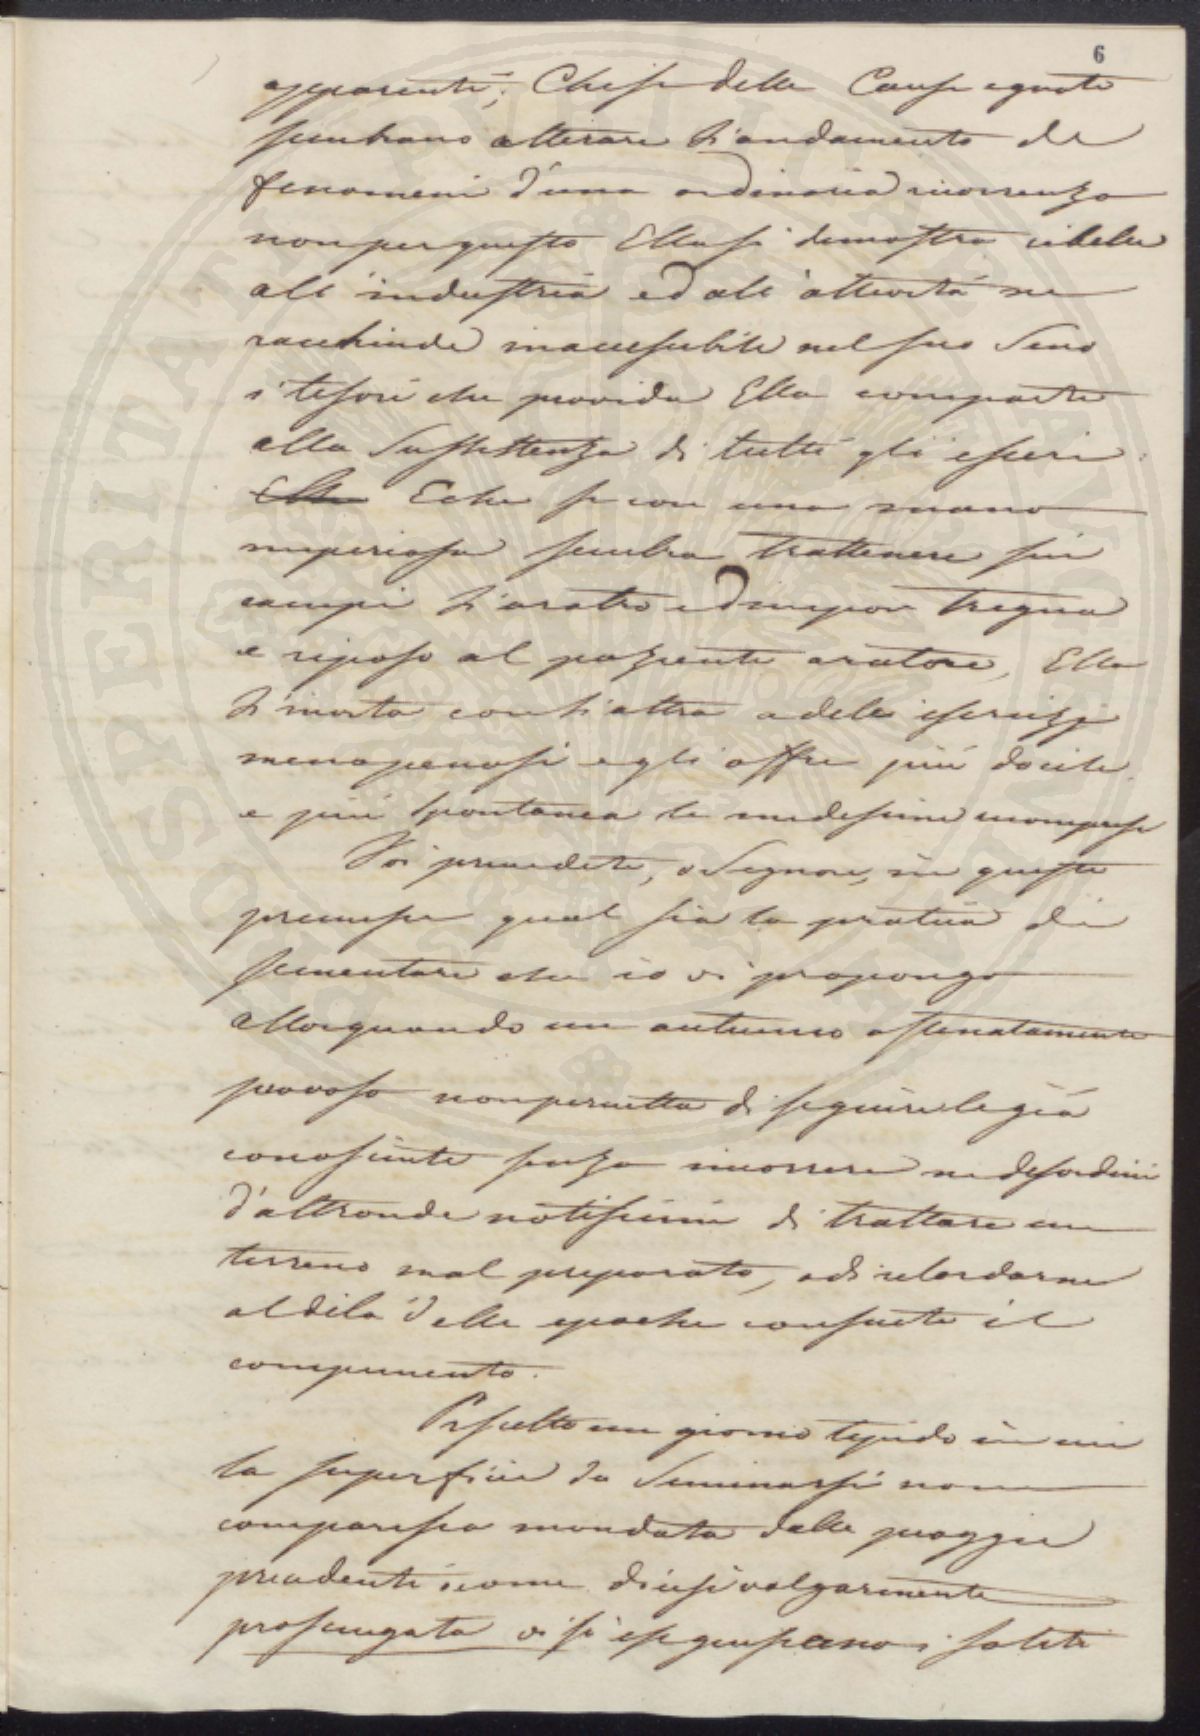 6
apparenti; Che se delle Cause egnote
sembrano alterare l'andamento de
fenomeni d'una ordinaria ricorrenza
non per questo Ella si dimostra
all'industria ed all'attività ne
racchiude inaccessibile nel suo Seno
i tesori che provida Ella comparte
alla Sussistenza di tutti gli esseri
Ella E che se con una mano
imperiosa sembra trattenere sui
campi l'aratro ed impor tregua
e riposo al paziente aratore, Ella
l'invita con l'altra a dele esercizj
meno penosi e gli offre più docile
e più spontanea le medesime ricompense
Voi prevedete, o Signori, in queste
premesse qual sia la pratica di
sementare che io vi propongo
allorquando un autunno ostinatamente
piovoso non permetta di seguire le già
conosciute senza incorrere ne disordini
d'altronde notissimi di trattare un
terreno mal preparato, o di ritardarne
al di là delle epoche consuete il
compimento.
Prescelto un giorno tepido in cui
la superficie da Seminarsi non
comparisca mondata dalle piogge
precedenti, come dicesi volgarmente
prosciugata vi si eseguiscano i soliti